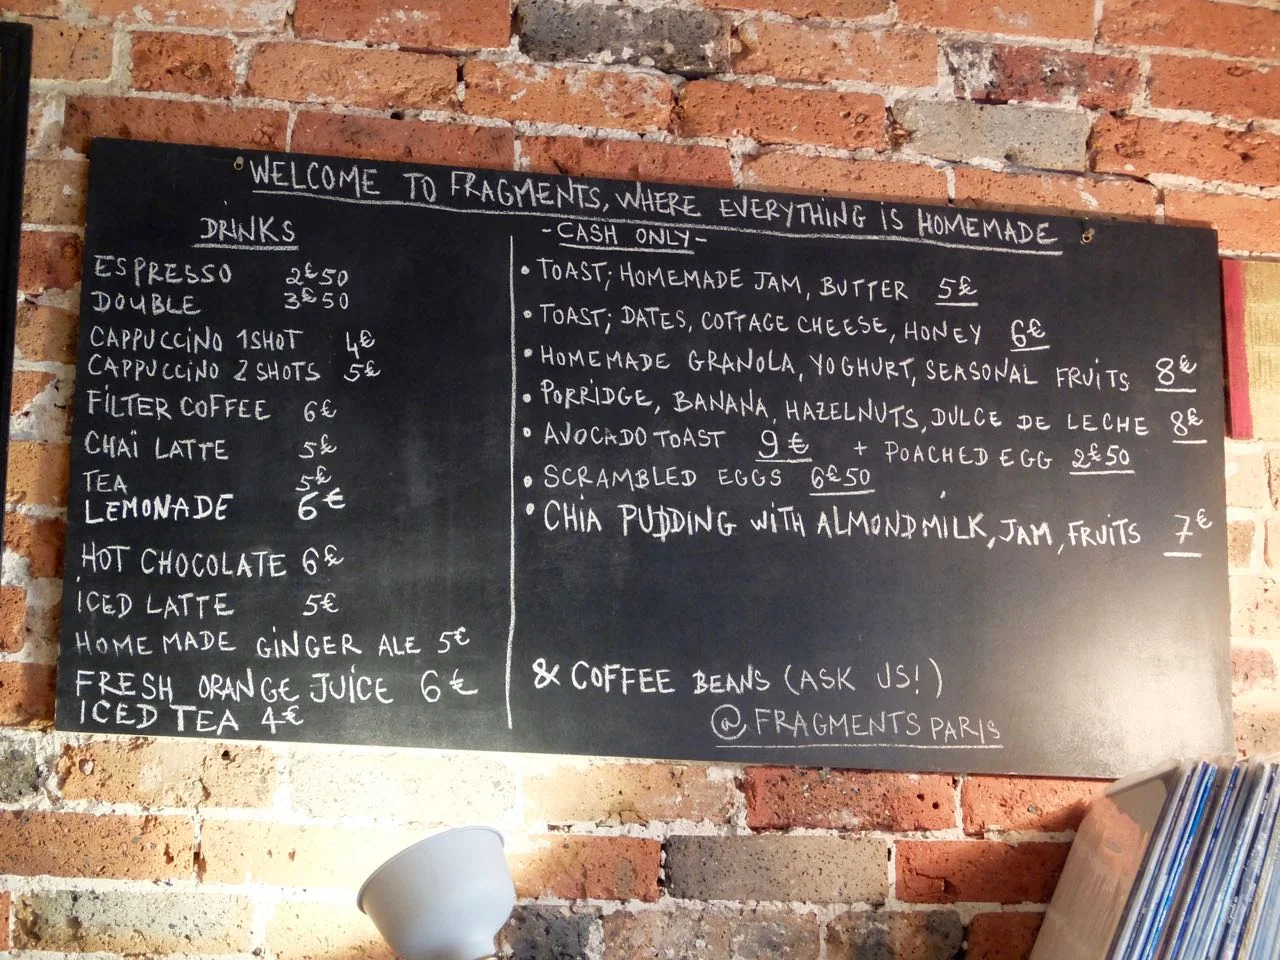 WELCOME TO FRAGMENTS, WHERE EVERYTHING iS HOMEMADE
DRiNKS
ESPRESSO 2€50
DOUBLE 3€50
CAPPUCCiNO 1SHOT 4€
CAPPUCCiNO 2 SHOTS 5€
FiLTER COFFEE 6€
CHAï LATTE 5€
TEA 5€
LEMONADE 6€
HOT CHOCOLATE 6€
iCED LATTE 5€
HOME MADE GiNGER ALE 5€
FRESH ORANGE JUiCE 6€
ICED TEA 4€
-CASH ONLY-
• TOAST; HOMEMADE JAM, BUTTER 5€
• TOAST; DATES, COTTAGE CHEESE, HONEY 6€
• HOMEMADE GRANOLA, YOGHURT, SEASONAL FRUiTS 8€
• PORRiDGE, BANANA, HAZELNUTS, DULCE DE LECHE 8€
• AVOCADO TOAST 9€ + POACHED EGG 2€50
• SCRAMBLED EGGS 6€50
• CHiA PUDDING WiTH ALMOND MiLK, JAM, FRUiTS 7€
& COFFEE BEANS (ASK US!)
@FRAGMENTSPARIS